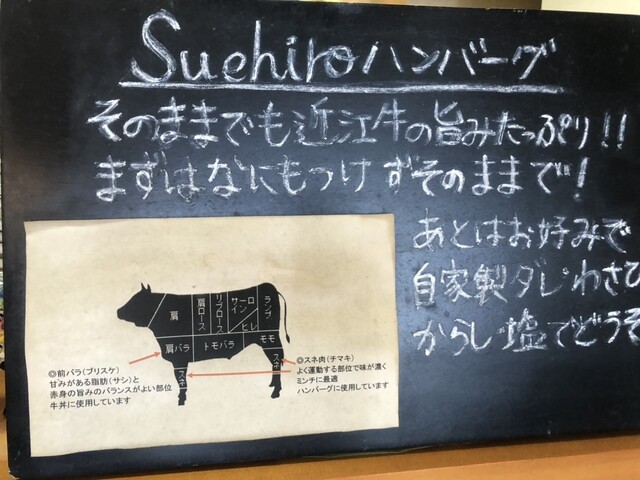 Suehiroハンバーグ
そのままでも近江牛の旨みたっぷり!!
まずはなにもつけずそのままで!
あとはお好みで
自家製ダレわさび
からし塩でどうぞ
肩
肩ロース
リブロース
サーロイン
ヒレ
ランプ
肩バラ
トモバラ
モモ
スネ
スネ
◎前バラ(ブリスケ)
甘みがある脂肪(サシ)と
赤身の旨みのバランスがよい部位
牛丼に使用しています
◎スネ肉(チマキ)
よく運動する部位で味が濃く
ミンチに最適
ハンバーグに使用しています